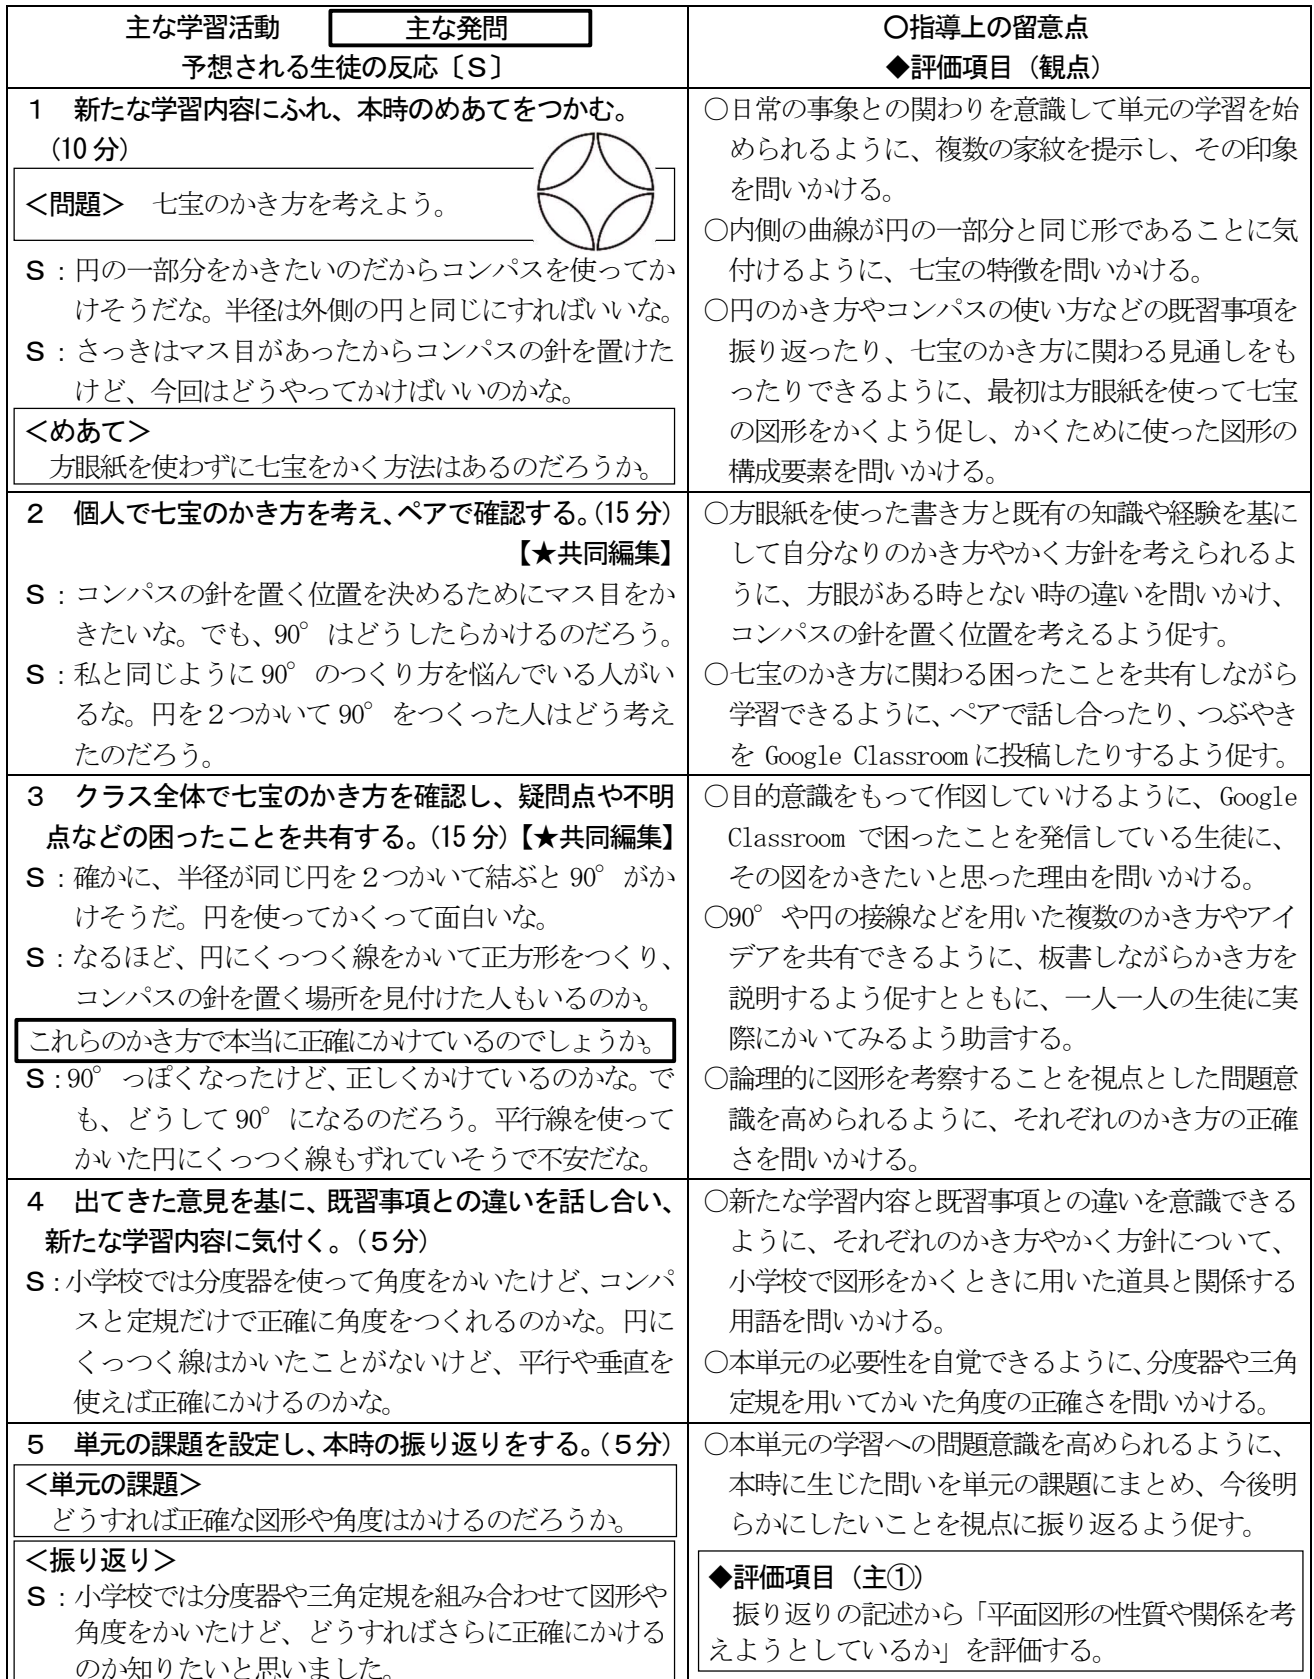 主な学習活動 主な発問
予想される生徒の反応〔Ｓ〕
○指導上の留意点
◆評価項目（観点）
１ 新たな学習内容にふれ、本時のめあてをつかむ。
(10分)
＜問題＞ 七宝のかき方を考えよう。
Ｓ：円の一部分をかきたいのだからコンパスを使ってか
けそうだな。半径は外側の円と同じにすればいいな。
Ｓ：さっきはマス目があったからコンパスの針を置けた
けど、今回はどうやってかけばいいのかな。
＜めあて＞
方眼紙を使わずに七宝をかく方法はあるのだろうか。
○日常の事象との関わりを意識して単元の学習を始
められるように、複数の家紋を提示し、その印象
を問いかける。
○内側の曲線が円の一部分と同じ形であることに気
付けるように、七宝の特徴を問いかける。
○円のかき方やコンパスの使い方などの既習事項を
振り返ったり、七宝のかき方に関わる見通しをも
ったりできるように、最初は方眼紙を使って七宝
の図形をかくよう促し、かくために使った図形の
構成要素を問いかける。
２ 個人で七宝のかき方を考え、ペアで確認する。(15分)
【★共同編集】
Ｓ：コンパスの針を置く位置を決めるためにマス目をか
きたいな。でも、90°はどうしたらかけるのだろう。
Ｓ：私と同じように90°のつくり方を悩んでいる人がい
るな。円を２つかいて90°をつくった人はどう考え
たのだろう。
○方眼紙を使った書き方と既有の知識や経験を基に
して自分なりのかき方やかく方針を考えられるよ
うに、方眼がある時とない時の違いを問いかけ、
コンパスの針を置く位置を考えるよう促す。
○七宝のかき方に関わる困ったことを共有しながら
学習できるように、ペアで話し合ったり、つぶやき
を Google Classroomに投稿したりするよう促す。
３ クラス全体で七宝のかき方を確認し、疑問点や不明
点などの困ったことを共有する。(15分)【★共同編集】
Ｓ：確かに、半径が同じ円を２つかいて結ぶと90°がか
けそうだ。円を使ってかくって面白いな。
Ｓ：なるほど、円にくっつく線をかいて正方形をつくり、
コンパスの針を置く場所を見付けた人もいるのか。
これらのかき方で本当に正確にかけているのでしょうか。
Ｓ：90°っぽくなったけど、正しくかけているのかな。で
も、どうして90°になるのだろう。平行線を使って
かいた円にくっつく線もずれていそうで不安だな。
○目的意識をもって作図していけるように、Google
Classroom で困ったことを発信している生徒に、
その図をかきたいと思った理由を問いかける。
○90°や円の接線などを用いた複数のかき方やアイ
デアを共有できるように、板書しながらかき方を
説明するよう促すとともに、一人一人の生徒に実
際にかいてみるよう助言する。
○論理的に図形を考察することを視点とした問題意
識を高められるように、それぞれのかき方の正確
さを問いかける。
４ 出てきた意見を基に、既習事項との違いを話し合い、
新たな学習内容に気付く。（５分）
Ｓ：小学校では分度器を使って角度をかいたけど、コンパ
スと定規だけで正確に角度をつくれるのかな。円に
くっつく線はかいたことがないけど、平行や垂直を
使えば正確にかけるのかな。
○新たな学習内容と既習事項との違いを意識できる
ように、それぞれのかき方やかく方針について、
小学校で図形をかくときに用いた道具と関係する
用語を問いかける。
○本単元の必要性を自覚できるように、分度器や三角
定規を用いてかいた角度の正確さを問いかける。
５ 単元の課題を設定し、本時の振り返りをする。（５分）
＜単元の課題＞
どうすれば正確な図形や角度はかけるのだろうか。
＜振り返り＞
Ｓ：小学校では分度器や三角定規を組み合わせて図形や
角度をかいたけど、どうすればさらに正確にかける
のか知りたいと思いました。
○本単元の学習への問題意識を高められるように、
本時に生じた問いを単元の課題にまとめ、今後明
らかにしたいことを視点に振り返るよう促す。
◆評価項目（主①）
振り返りの記述から「平面図形の性質や関係を考
えようとしているか」を評価する。